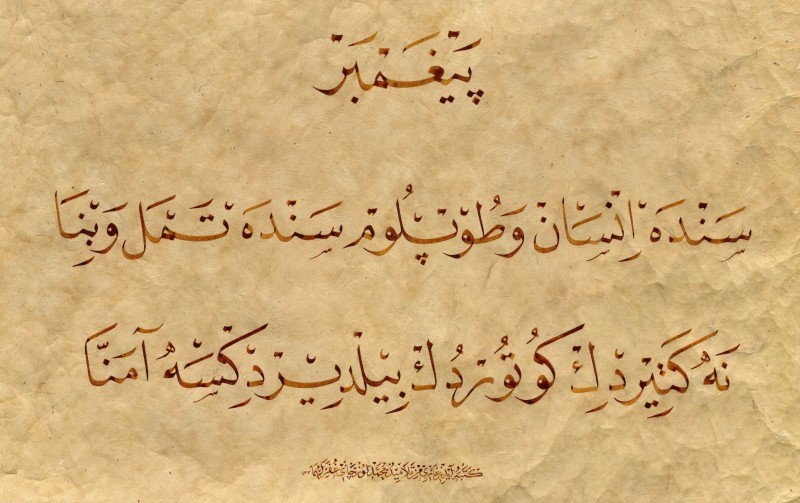 پَيْغَمْبَرْ
سَنْدَهْ اِنْسَانْ وَطُوْپْلُومْ سَنْدَهْ تَمَلْ وَبِنَا
نَهْ كَتِيرْدِكْ كُوتُورْدُكْ بِيلْدِيرْدِكْسَهْ آمَنَّا